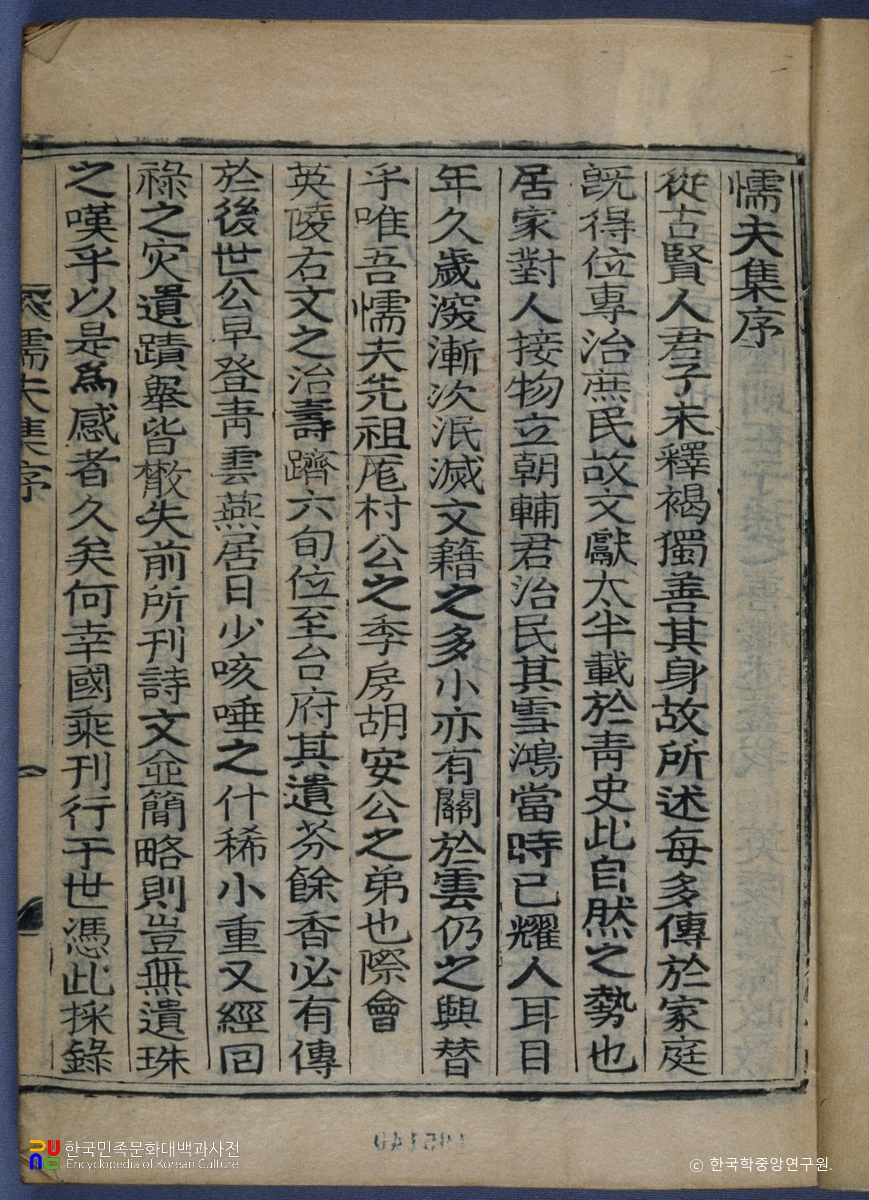 懦夫集序
從古賢人君子未釋褐獨善其身故所述每多傳於家庭
旣得位專治庶民故文獻太半載於靑史此自然之勢也
居家對人接物立朝輔君治民其雪鴻當時已耀人耳目
年久歲深漸次泯滅文籍之多小亦有關於雲仍之興替
乎唯吾懦夫先祖厖村公之季房胡安公之弟也際會
英陵右文之治壽躋六旬位至台府其遺芬餘香必有傳
於後世公早登靑雲燕居日少咳唾之什稀小重又經回
祿之灾遺蹟擧皆散失前所刊詩文並簡略則豈無遺珠
之嘆乎以是爲感者久矣何幸國乘刊行于世憑此採錄
懦夫集序
一
한국민족문화대백과사전
Encyclopedia of Korean Culture
ⓒ 한국학중앙연구원.